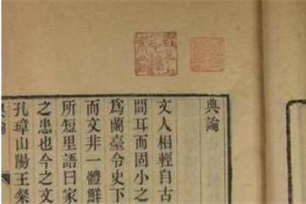 典論
文人相輕自古
問耳而固小之
為蘭臺令史下
而文非一體鮮
所短里語曰家
之患也今之文
孔璋山陽王粲
典論